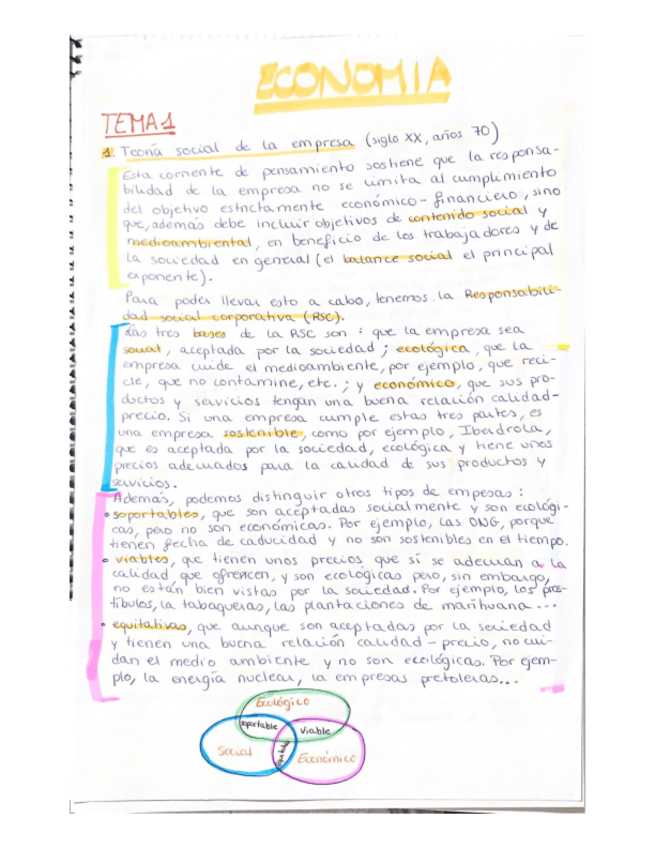 ECONOMIA
TEMA 1
1. Teoría social de la empresa (siglo XX, años 70)
Esta corriente de pensamiento sostiene que la responsa-
bilidad de la empresa no se limita al cumplimiento
del objetivo estrictamente económico-financiero, sino
que, además debe incluir objetivos de contenido social y
medioambiental, en beneficio de los trabajadores y de
la sociedad en general (el balance social el principal
exponente).
Para poder llevar esto a cabo, tenemos la Responsabili-
dad social corporativa (RSC).
Las tres bases de la RSC son: que la empresa sea
social, aceptada por la sociedad; ecológica, que la
empresa cuide el medioambiente, por ejemplo, que reci-
cle, que no contamine, etc.; y económico, que sus pro-
ductos y servicios tengan una buena relación calidad-
precio. Si una empresa cumple estas tres partes, es
una empresa sostenible, como por ejemplo, Iberdrola,
que es aceptada por la sociedad, ecológica y tiene unos
precios adecuados para la calidad de sus productos y
servicios.
Además, podemos distinguir otros tipos de empesas:
• soportables, que son aceptadas socialmente y son ecológi-
cas, pero no son económicas. Por ejemplo, las ONG, porque
tienen fecha de caducidad y no són sostenibles en el tiempo.
• viables, que tienen unos precios que sí se adecuan a la
calidad que ofrencen, y son ecológicas pero, sin embargo,
no están bien vistas por la sociedad. Por ejemplo, los pros-
tíbulos, la tabaqueras, las plantaciones de marihuana...
• equitativas, que aunque son aceptadas por la sociedad
y tienen una buena relación calidad-precio, no cui-
dan el medio ambiente y no son ecológicas. Por ejem-
plo, la energía nuclear, la empresas petroleras...
Ecológico
soportable
Viable
Social
Económico